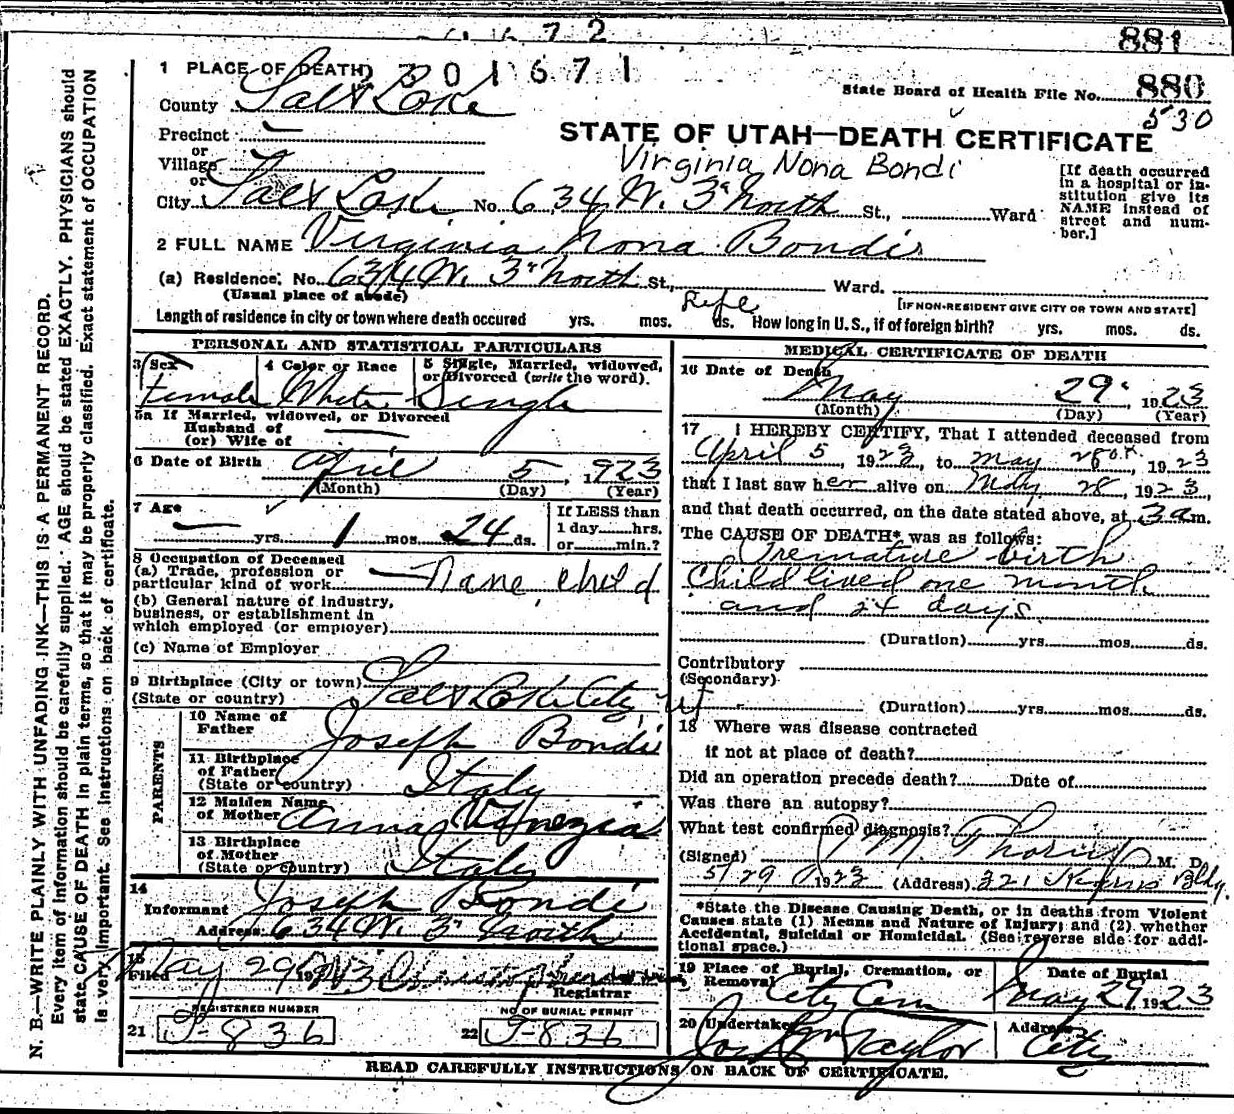 72
881
1 PLACE OF DEATH
301671
State Board of Health File No. 880
530
County Salt Lake
Precinct —
or
Village
or
STATE OF UTAH—DEATH CERTIFICATE
Virginia Nona Bondi
City Salt Lake No. 634 W. 3" North St., Ward
[If death occurred in a hospital or institution give its NAME instead of street and number.]
2 FULL NAME Virginia Nona Bondi
(a) Residence. No. 634 W. 3" North St., Ward.
(Usual place of abode) [IF NON-RESIDENT GIVE CITY OR TOWN AND STATE]
Length of residence in city or town where death occured yrs. mos. Life ds. How long in U.S., if of foreign birth? yrs. mos. ds.
PERSONAL AND STATISTICAL PARTICULARS
3 Sex
Female
4 Color or Race
White
5 Single, Married, widowed, or Divorced (write the word).
Single
5a If Married, widowed, or Divorced
Husband of
(or) Wife of —
6 Date of Birth April 5, 1923
(Month) (Day) (Year)
7 Age
— yrs. 1 mos. 24 ds.
If LESS than
1 day......hrs.
or......min.?
8 Occupation of Deceased
(a) Trade, profession or
particular kind of work — None, child
(b) General nature of industry,
business, or establishment in
which employed (or employer)
(c) Name of Employer
9 Birthplace (City or town) Salt Lake City, Ut
(State or country)
PARENTS
10 Name of
Father Joseph Bondi
11 Birthplace
of Father
(State or country) Italy
12 Maiden Name
of Mother Anna Venezia
13 Birthplace
of Mother
(State or country) Italy
14
Informant Joseph Bondi
Address 634 W. 3" North
15
Filed May 29 19
Registrar
REGISTERED NUMBER
21 J-836
NO OF BURIAL PERMIT
22 J-836
MEDICAL CERTIFICATE OF DEATH
16 Date of Death
May 29, 1923
(Month) (Day) (Year)
17 I HEREBY CERTIFY, That I attended deceased from
April 5, 1923, to May 28, 1923
that I last saw her alive on May 28, 1923,
and that death occurred, on the date stated above, at 3 a m.
The CAUSE OF DEATH* was as follows:
Premature birth
Child lived one month
and 24 days
(Duration)......yrs......mos......ds.
Contributory
(Secondary)
(Duration)......yrs......mos......ds.
18 Where was disease contracted
if not at place of death?
Did an operation precede death?......Date of
Was there an autopsy?
What test confirmed diagnosis?
(Signed) M. D.
5/29 1923 (Address) 321 Kearns Bldg.
*State the Disease Causing Death, or in deaths from Violent
Causes state (1) Means and Nature of Injury; and (2) whether
Accidental, Suicidal or Homicidal. (See reverse side for additional space.)
19 Place of Burial, Cremation, or
Removal City Cem
Date of Burial
May 29, 1923
20 Undertaker
Jos Wm Taylor
Address
City
READ CAREFULLY INSTRUCTIONS ON BACK OF CERTIFICATE.
N. B.—WRITE PLAINLY WITH UNFADING INK—THIS IS A PERMANENT RECORD.
Every item of information should be carefully supplied. AGE should be stated EXACTLY. PHYSICIANS should
state CAUSE OF DEATH in plain terms, so that it may be properly classified. Exact statement of OCCUPATION
is very important. See instructions on back of certificate.